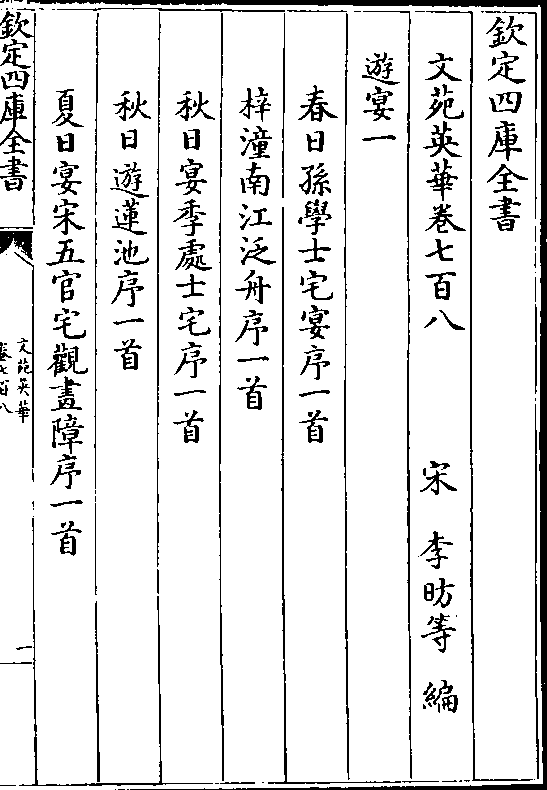 欽定四庫全書
文苑英華卷七百八 宋 李昉等 編
遊宴一
春日孫學士宅宴序一首
梓潼南江泛舟序一首
秋日宴季處士宅序一首
秋日遊蓮池序一首
夏日宴宋五官宅觀畫障序一首
欽定四庫全書
文苑英華
卷七百八
一